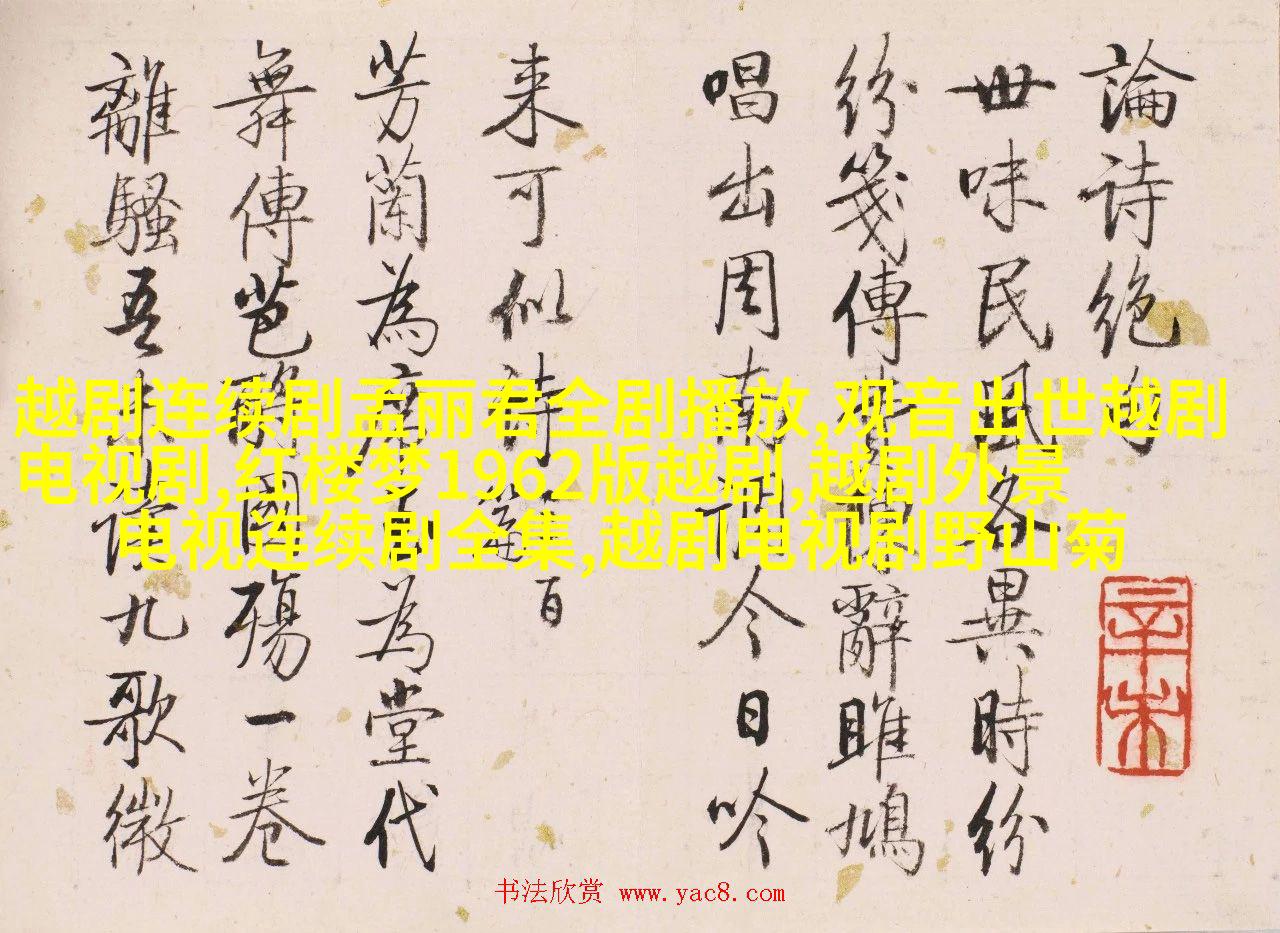 論詩絕句
世味民風各異時紛
紛箋傳辭雎鳩
唱出周南調今日吟
來可似詩篇百
芳蘭為席玉為堂代
舞傳芭酹國殤一卷
離騷吾讀九歌微
辛未
越剧连续剧孟丽君全剧播放,观音出世越剧
电视剧,红楼梦1962版越剧,越剧外景
电视连续剧全集,越剧电视剧野山菊
书法欣赏 www.yac8.com